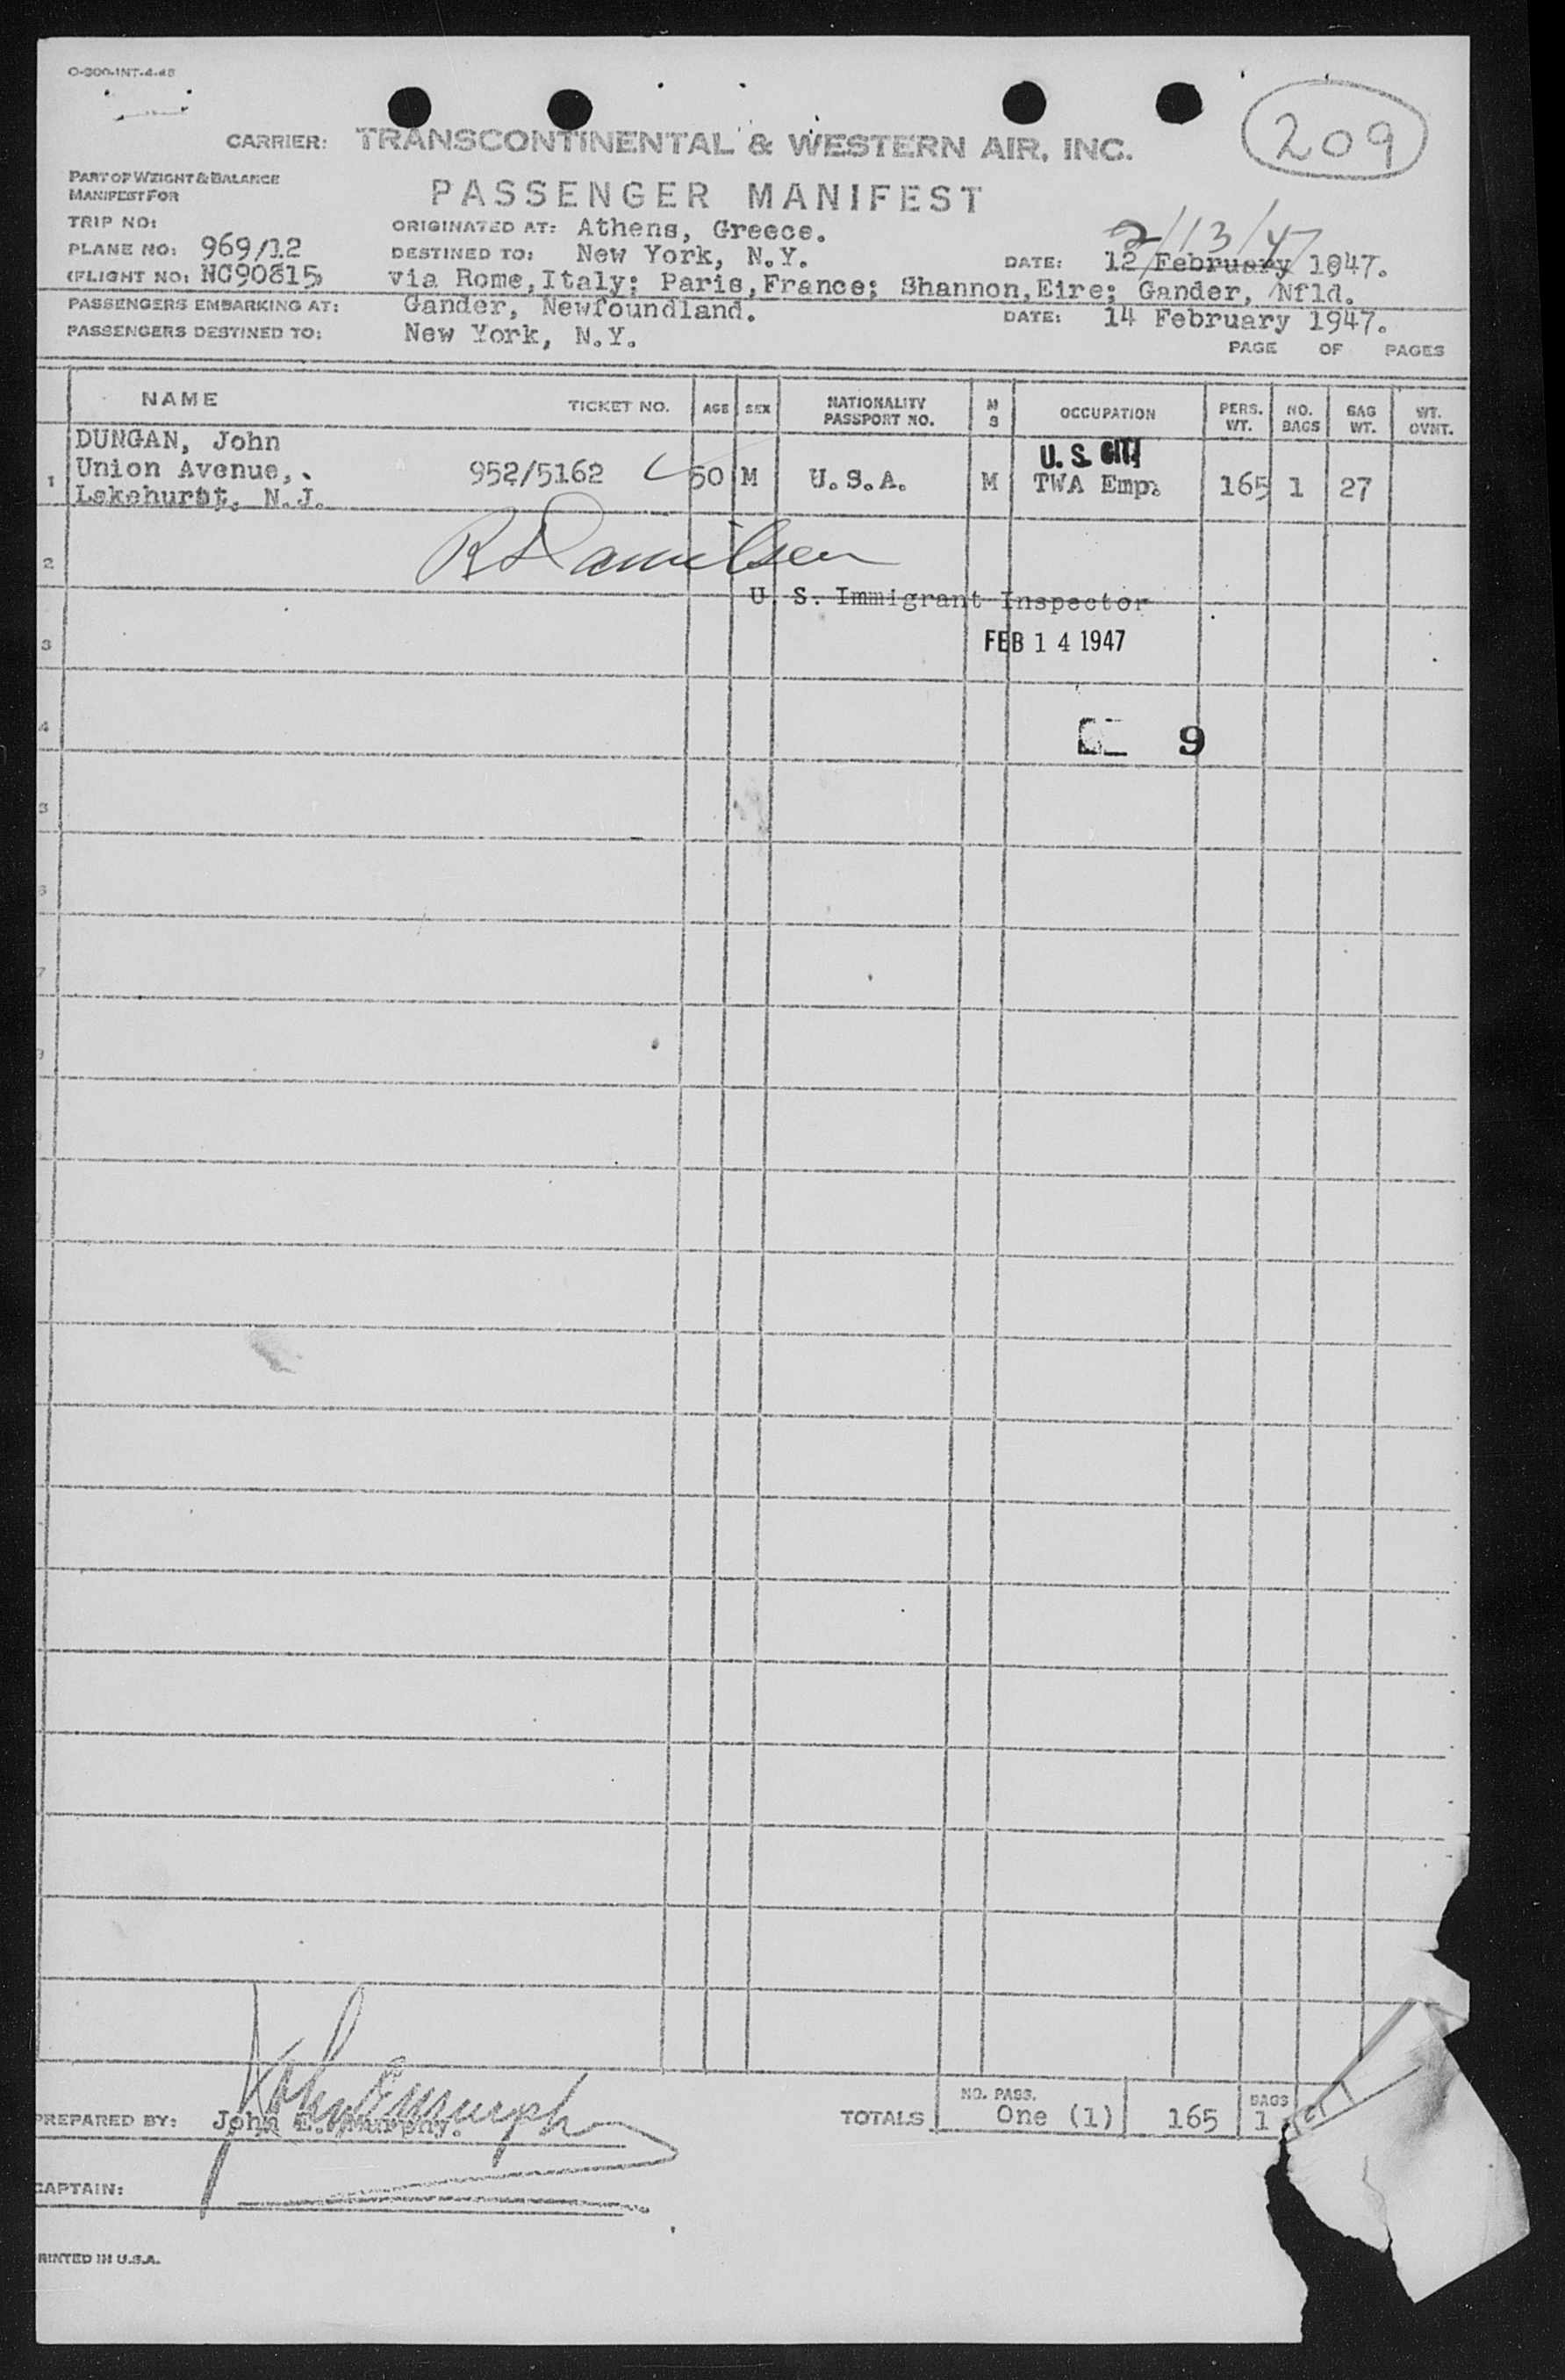 O-300-INT-4-46
209
CARRIER: TRANSCONTINENTAL & WESTERN AIR, INC.
PART OF WEIGHT & BALANCE
MANIFEST FOR
PASSENGER MANIFEST
TRIP NO:
ORIGINATED AT: Athens, Greece.
2/13/47
PLANE NO: 969/12
DESTINED TO: New York, N.Y.
DATE: 12 February 1947.
(FLIGHT NO: NC90815)
via Rome,Italy; Paris,France; Shannon,Eire; Gander, Nfld.
PASSENGERS EMBARKING AT: Gander, Newfoundland.
DATE: 14 February 1947.
PASSENGERS DESTINED TO: New York, N.Y.
PAGE OF PAGES
NAME TICKET NO. AGE SEX NATIONALITY PASSPORT NO. M S OCCUPATION PERS. WT. NO. BAGS BAG WT. WT. OVNT.
DUNGAN, John
U. S. CIT.
1 Union Avenue, 952/5162 50 M U.S.A. M TWA Emp. 165 1 27
Lakehurst, N.J.
2 R Danielsen
U. S. Immigrant Inspector
3 FEB 14 1947
4 9
5
6
7
John E Murphy
PREPARED BY: John E. Murphy.
TOTALS NO. PASS. One (1) 165 BAGS 1
CAPTAIN:
PRINTED IN U.S.A.